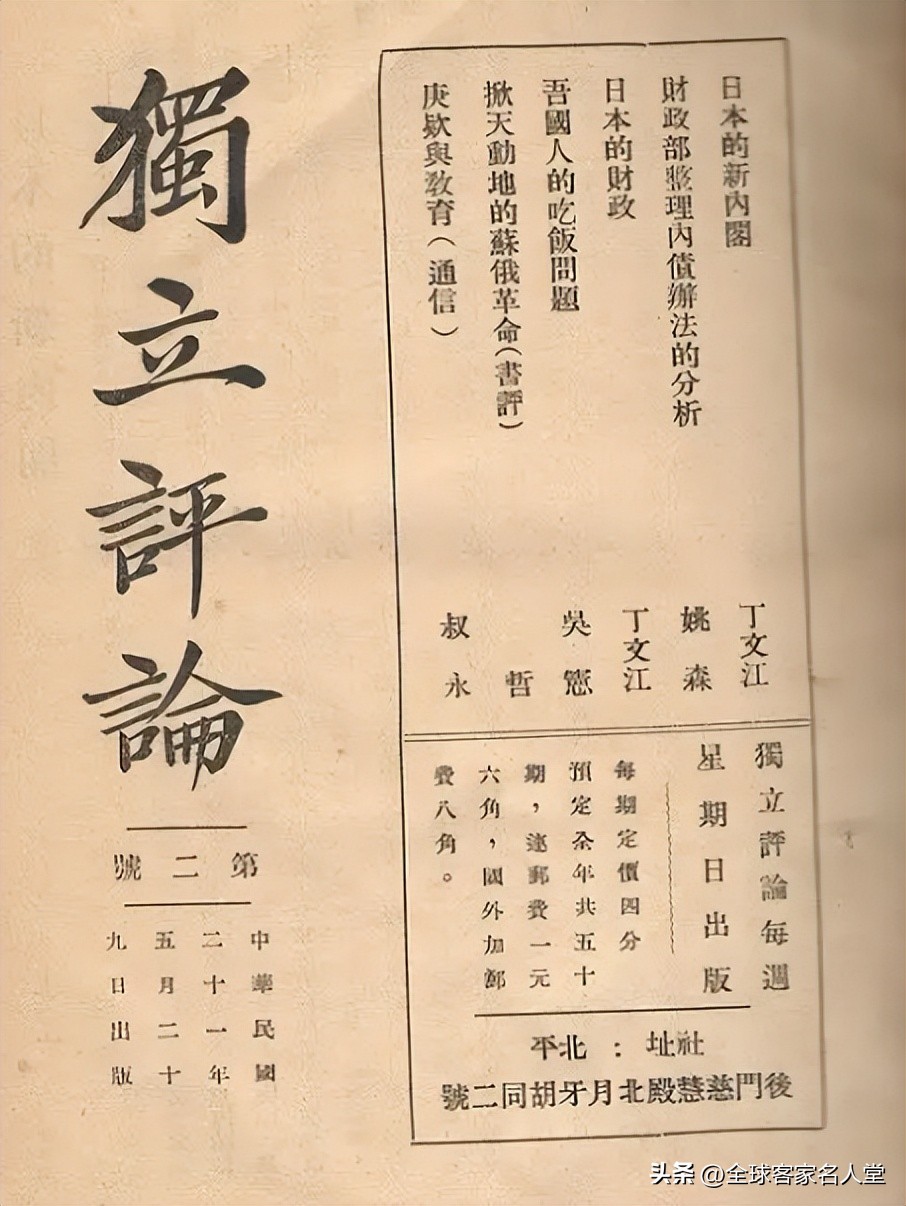 獨立評論
第二號
中華民國
二十一年
五月二十
九日出版
日本的新內閣 丁文江
財政部整理內債辦法的分析 姚森
日本的財政 丁文江
吾國人的吃飯問題 吳憲
掀天動地的蘇俄革命(書評) 哲
庚欵與敎育(通信) 叔永
獨立評論每週
星期日出版
每期定價四分
預定全年共五十
期,連郵費一元
六角,國外加郵
費八角。
社址:北平
後門慈慧殿北月牙胡同二號
头条 @全球客家名人堂